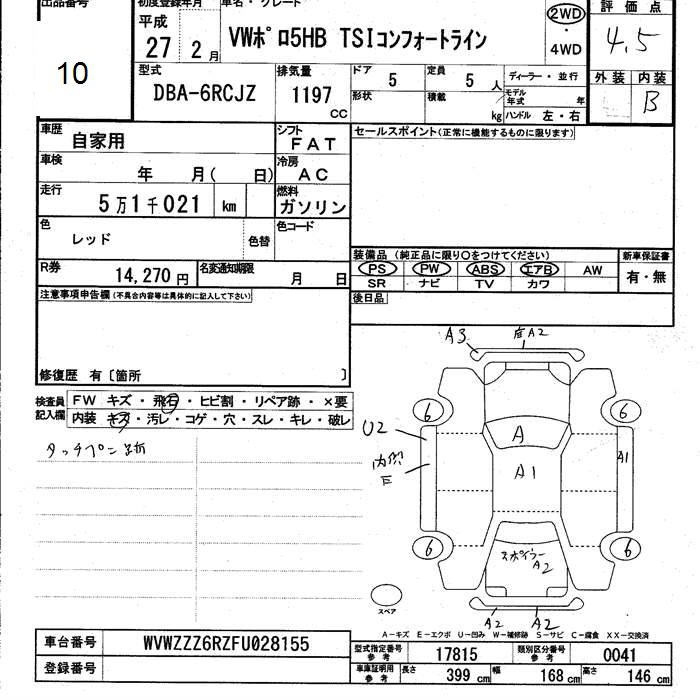 出品番号
10
初度登録年月
平成
27 2 月
車名・グレード
VWポロ5HB TSIコンフォートライン
2WD
・
4WD
評価点
4.5
外装 内装
B
型式
DBA-6RCJZ
排気量
1197
cc
ドア
5
定員
5 人
形状
積載
kg
ディーラー・並行
モデル年式 年
ハンドル 左・右
車歴
自家用
シフト
FAT
車検
年 月( 日)
冷房
AC
走行
5万1千021 km
燃料
ガソリン
色
レッド
色替
色コード
R券
14,270 円
名変通知期限
月 日
セールスポイント(正常に機能するものに限ります)
装備品 (純正品に限り〇をつけてください)
新車保証書
PS PW ABS エアB AW
SR ナビ TV カワ
有・無
後日品
注意事項申告欄(不具合内容等は具体的に記入して下さい)
修復歴 有〔箇所 〕
検査員
記入欄
FW キズ・飛石・ヒビ割・リペア跡・×要
内装 キズ・汚レ・コゲ・穴・スレ・キレ・破レ
タッチペン跡
A3
A2
6
6
U2
内側
E
A
A1
A1
6
6
スポイラー
A2
スペア
A2 A2
A-キズ E-エクボ U-凹み W-補修跡 S-サビ C-腐食 XX-交換済
車台番号
WVWZZZ6RZFU028155
登録番号
型式指定番号
参考
17815
類別区分番号
参考
0041
車庫証明用
参考
長さ
399 cm
幅
168 cm
高さ
146 cm